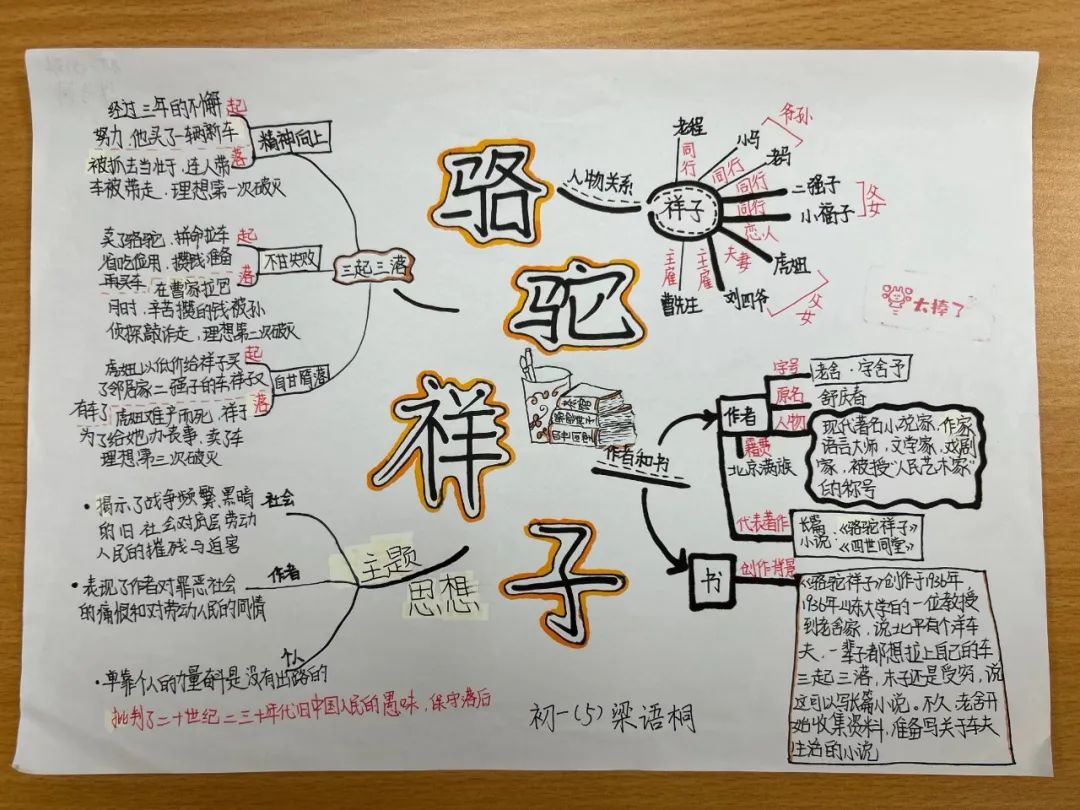 骆
驼
祥
子
三起三落
精神向上
经过三年的不懈 起
努力,他买了一辆新车
被抓去当壮丁,连人带 落
车被带走,理想第一次破灭
不甘失败
卖了骆驼,拼命拉车 起
省吃俭用,攒钱准备
再买车 落
在曹家拉包
月时,辛苦攒的钱被孙
侦探敲诈走,理想第二次破灭
自甘堕落
虎妞以低价给祥子买 起
了邻居家二强子的车祥子又
有车了 虎妞难产而死,祥子 落
为了给她办丧事,卖了车
理想第三次破灭
人物关系
祥子
老程
同行
小马
同行
老马
同行
爷孙
二强子
同行
小福子
恋人
父女
虎妞
夫妻
刘四爷
主雇
父女
曹先生
主雇
太棒了
作者和书
作者
字号
老舍·字舍予
原名
舒庆春
人物
现代著名小说家,作家
语言大师,文学家,戏剧
家,被授"人民艺术家"
的称号
籍贯
北京满族
代表著作
长篇小说:《骆驼祥子》
《四世同堂》
书
创作背景
《骆驼祥子》创作于1936年,
1936年山东大学的一位教授
到老舍家,说北平有个洋车
夫,一辈子都想拉上自己的车
三起三落,末了还是受穷,说
这可以写长篇小说。不久,老舍开
始收集资料,准备写关于车夫
生活的小说
主题
思想
社会
·揭示了战争频繁、黑暗
的旧社会对底层劳动
人民的摧残与迫害
作者
·表现了作者对罪恶社会
的痛恨和对劳动人民的同情
个人
·单靠个人的力量奋斗是没有出路的
批判了二十世纪二三十年代旧中国人民的愚昧,保守落后
初一(5)梁语桐